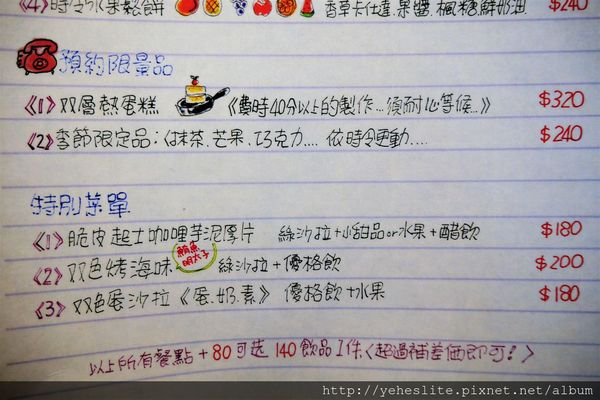 《4》時令水果鬆餅 香草卡仕達.果醬.楓糖.鮮奶油 $240
預約限量品
《1》双層熱蛋糕 《費時40分以上的製作…須耐心等候…》 $320
《2》季節限定品:《抹茶.芒果.巧克力.... 依時令更動.... $240
特別菜單
《1》脆皮起士咖哩芋泥厚片 綠沙拉+小甜品or水果+醋飲 $180
鮪魚
明太子
《2》双色烤海味 綠沙拉+優格飲 $200
《3》双色蛋沙拉《蛋.奶.素》 優格飲+水果 $180
以上所有餐點+80可選140飲品1件〈超過補差価即可!〉
http://yeheslite.pixnet.net/album